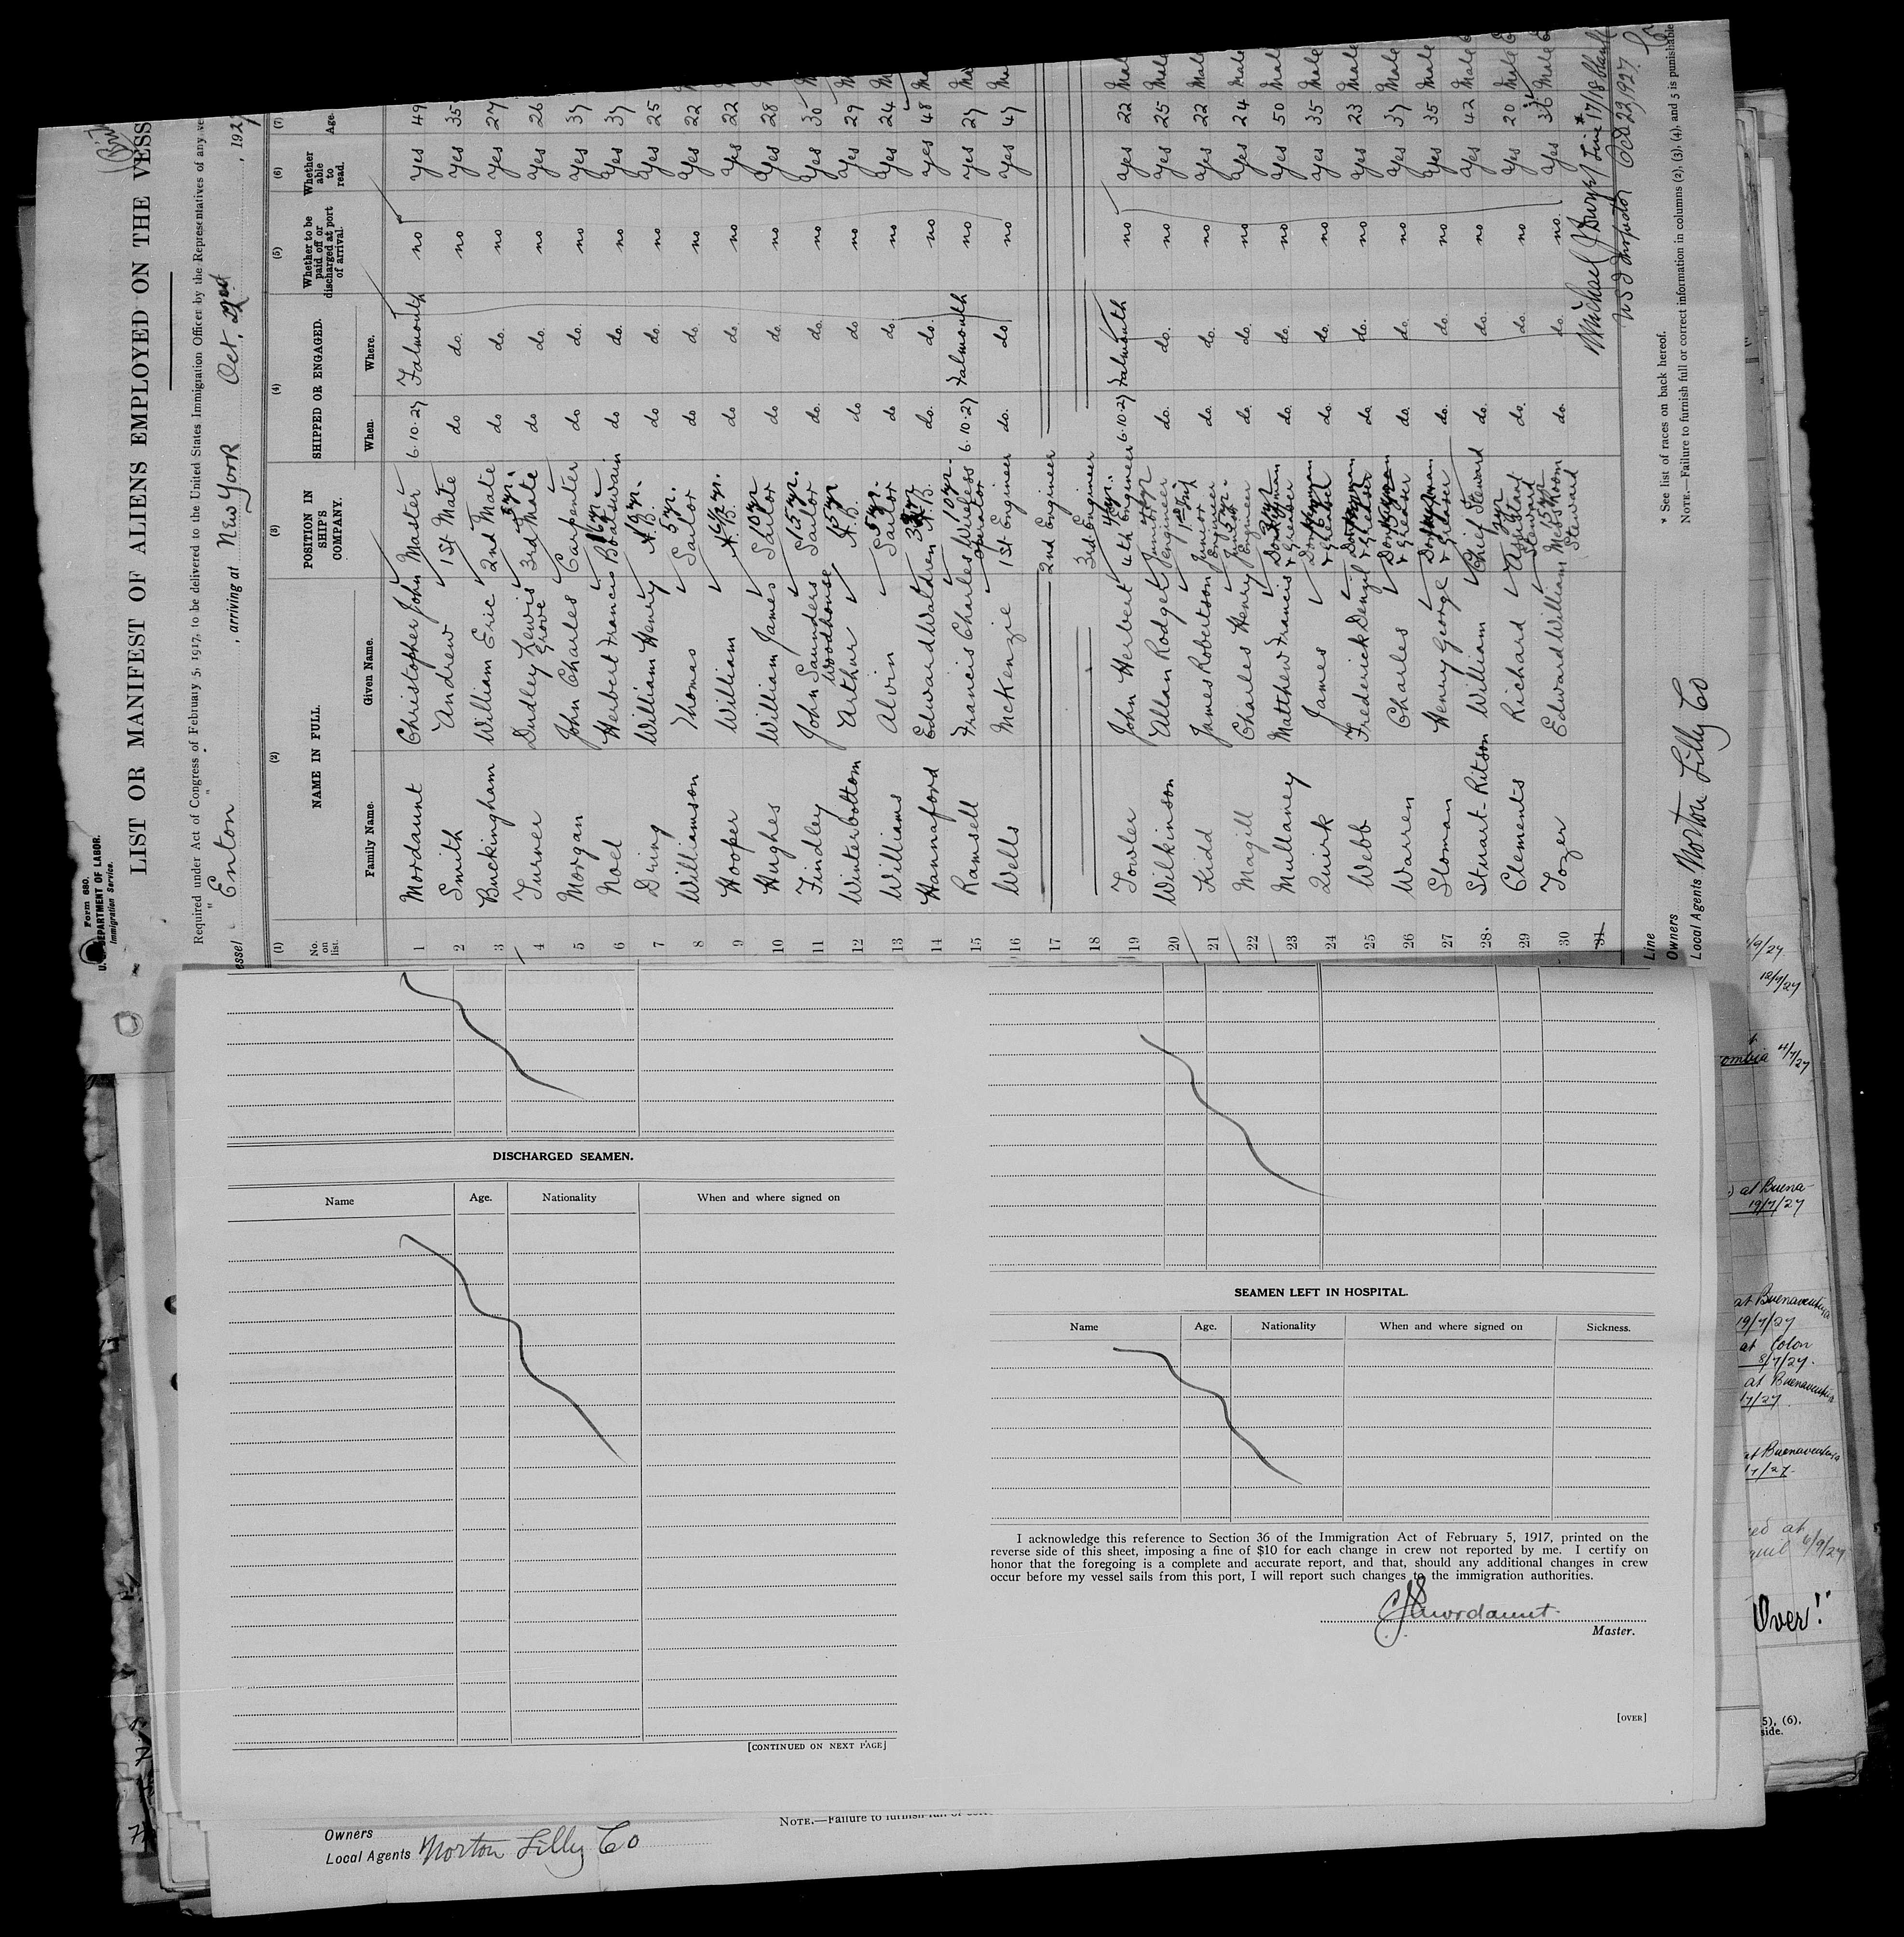 Form 680.
U. S. DEPARTMENT OF LABOR.
Immigration Service.
LIST OR MANIFEST OF ALIENS EMPLOYED ON THE VESS
Required under Act of Congress of February 5, 1917, to be delivered to the United States Immigration Officer by the Representatives of any ve
essel "Enton" , arriving at New York Oct. 22nd , 1927
(1) (2) (3) (4) (5) (6) (7)
No. on list. NAME IN FULL. POSITION IN SHIP'S COMPANY. SHIPPED OR ENGAGED. Whether to be paid off or discharged at port of arrival. Whether able to read. Age
Family Name. Given Name. When. Where.
1 Mordaunt Christopher John Master 6.10.27 Falmouth no yes 49
2 Smith Andrew 1st Mate do do. no yes 35
3 Buckingham William Eric 2nd Mate do do. no yes 27
4 Turner Dudley Lewis Grove 3rd Mate do do. no yes 26
5 Morgan John Charles Carpenter do do. no yes 37
6 Noel Herbert Francis Boatswain do do. no yes 37
7 Dring William Henry A.B. do do. no yes 25
8 Williamson Thomas 5 yr. Sailor do do. no yes 22
9 Hooper William A.B. do do. no yes 22
10 Hughes William James 10 yr Sailor do do. no yes 28
11 Findley John Saunders Woodhouse 15 yr. Sailor do do. no yes 30
12 Winterbottom Arthur A.B. do do no yes 29
13 Williams Alvin 5 yr. Sailor do do. no yes 24
14 Hannaford Edward Waldren A.B. do. do. no yes 48
15 Ramsell Francis Charles Wireless Operator 6.10.27 Falmouth no yes 27
16 Wells McKenzie 1st Engineer do. do no yes 47
17 2nd Engineer
18 3rd Engineer
19 Towler John Herbert 4th Engineer 6.10.27 Falmouth no yes 22 Male
20 Wilkinson Allan Rodger Junior Engineer do. do. no yes 25 Male
21 Kidd James Robertson Junior Engineer do. do. no yes 22 Male
22 Magill Charles Henry Junior Engineer do. do. no yes 24 Male
23 Mullaney Matthew Francis Donkeyman & Greaser do. do. no yes 50 Male
24 Quirk James Donkeyman & Greaser do. do. no yes 35 Male
25 Webb Frederick Denzil Donkeyman & Greaser do. do. no yes 23 Male
26 Warren Charles Donkeyman & Greaser do. do. no yes 37 Male
27 Sloman Henry George Donkeyman & Greaser do. do. no yes 35 Male
28. Stuart-Ritson William Chief Steward do. do. no yes 42 Male
29 Clements Richard Assistant Steward do. do. no yes 20 Male
30 Tozer Edward William Mess Room Steward do. do. no yes 36 Male
31
Line
Owners
Local Agents Norton Lilly Co
* See list of races on back hereof.
NOTE.—Failure to furnish full or correct information in columns (2), (3), (4), and 5 is punishable
Oct 22, 1927
DISCHARGED SEAMEN.
Name Age. Nationality When and where signed on
[CONTINUED ON NEXT PAGE]
SEAMEN LEFT IN HOSPITAL.
Name Age. Nationality When and where signed on Sickness.
I acknowledge this reference to Section 36 of the Immigration Act of February 5, 1917, printed on the
reverse side of this sheet, imposing a fine of $10 for each change in crew not reported by me. I certify on
honor that the foregoing is a complete and accurate report, and that, should any additional changes in crew
occur before my vessel sails from this port, I will report such changes to the immigration authorities.
CJMordaunt.
Master.
[OVER]
12/9/27
4/7/27
at Buena-
19/7/27
at Buenaventura
19/7/27
at Colon
8/7/27.
at Buenaventura
at Buenaventura
at
6/9/27
Over!
5), (6),
side.
NOTE.—Failure to furnish
Owners
Local Agents Norton Lilly Co